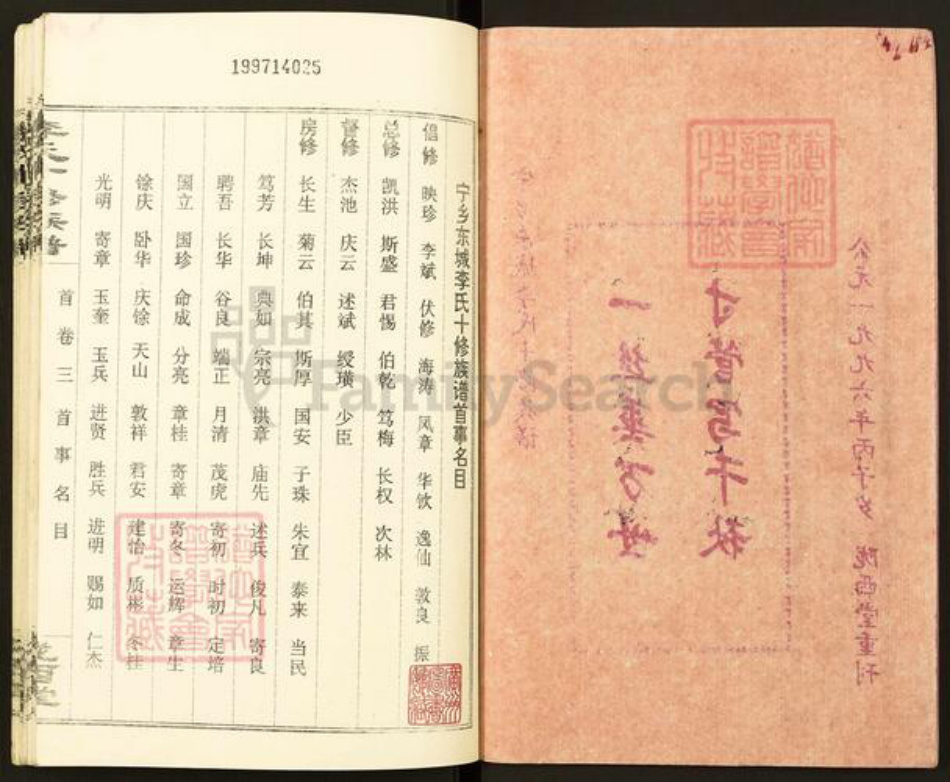 199714025
宁乡东城李氏十修族谱首事名目
倡修 映珍 李斌 伏修 海涛 凤章 华钦 逸仙 敦良 振
总修 凯洪 斯盛 君惕 伯乾 笃梅 长权 次林
督修 杰池 庆云 述斌 绶璜 少臣
房修 长生 菊云 伯其 斯厚 国安 子珠 朱宜 泰来 当民
笃芳 长坤 典如 宗亮 洪章 庙先 述兵 俊凡 寄良
聘吾 长华 谷良 端正 月清 茂虎 寄初 时初 定培
国立 国珍 命成 分亮 章桂 寄章 寄冬 运辉 章生
馀庆 卧华 庆馀 天山 敦祥 君安 建怡 质彬 冬桂
光明 寄章 玉奎 玉兵 进贤 胜兵 进明 赐如 仁杰
首卷三 首事名目
公元一九九六年丙子岁 陇西堂重刊
千秋
一
FamilySearch